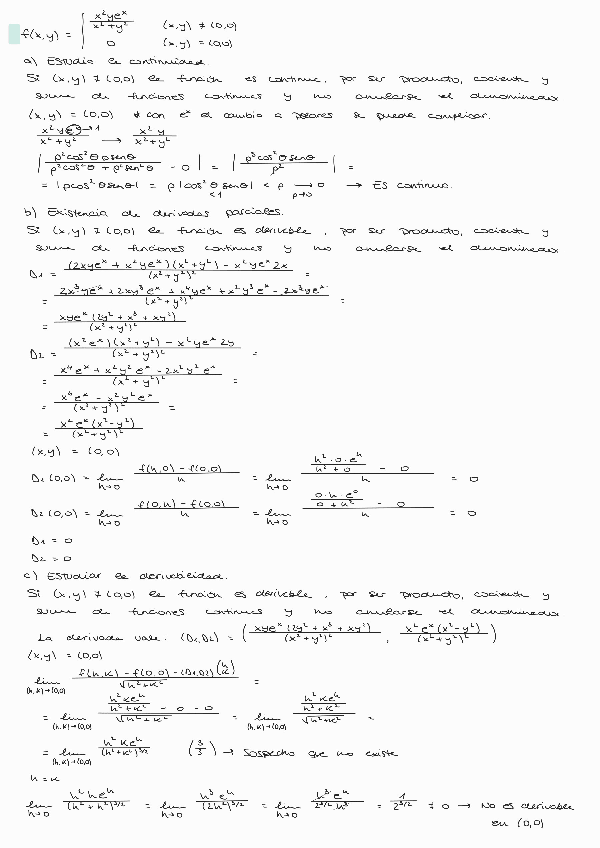 f(x,y) = { x²yeˣ / x²+y²   (x,y) ≠ (0,0)
0   (x,y) = (0,0)
a) Estudia la continuidad.
Si (x,y) ≠ (0,0) la función es continua, por ser producto, cociente y
suma de funciones continuas y no anularse el denominador
(x,y) = (0,0) * con eˣ el cambio a polares se puede complicar.
x²yeˣ→1 / x²+y² → x²y / x²+y²
| ρ²cos²θ ρsenθ / ρ²cos²θ + ρ²sen²θ - 0 | = | ρ³cos²θsenθ / ρ² | =
= |ρcos²θsenθ| = ρ |cos²θsenθ| < ρ → 0 → Es continua.
<1 ρ→0
b) Existencia de derivadas parciales.
Si (x,y) ≠ (0,0) la función es derivable, por ser producto, cociente y
suma de funciones continuas y no anularse el denominador
D1 = (2xyeˣ + x²yeˣ)(x²+y²) - x²yeˣ2x / (x²+y²)² =
= 2x³yeˣ + 2xy³eˣ + x⁴yeˣ + x²y³eˣ - 2x³yeˣ / (x²+y²)² =
= xyeˣ(2y² + x³ + xy²) / (x²+y²)²
D2 = (x²eˣ)(x²+y²) - x²yeˣ2y / (x²+y²)² =
= x⁴eˣ + x²y²eˣ - 2x²y²eˣ / (x²+y²)² =
= x⁴eˣ - x²y²eˣ / (x²+y²)² =
= x²eˣ(x²-y²) / (x²+y²)²
(x,y) = (0,0)
D1(0,0) = lim h→0 f(h,0) - f(0,0) / h = lim h→0 (h²·0·eʰ / h²+0 - 0) / h = 0
D2(0,0) = lim h→0 f(0,h) - f(0,0) / h = lim h→0 (0·h·e⁰ / 0+h² - 0) / h = 0
D1 = 0
D2 = 0
c) Estudiar la derivabilidad.
Si (x,y) ≠ (0,0) la función es derivable, por ser producto, cociente y
suma de funciones continuas y no anularse el denominador
La derivada vale: (D1,D2) = ( xyeˣ(2y² + x³ + xy²) / (x²+y²)² , x²eˣ(x²-y²) / (x²+y²)² )
(x,y) = (0,0)
lim (h,k)→(0,0) f(h,k) - f(0,0) - (D1,D2)(h k) / √h²+k² =
= lim (h,k)→(0,0) (h²keʰ / h²+k² - 0 - 0) / √h²+k² = lim (h,k)→(0,0) (h²keʰ / h²+k²) / √h²+k² =
= lim (h,k)→(0,0) h²keʰ / (h²+k²)^3/2 (3/3) → Sospecho que no existe
h = k
lim h→0 h²heʰ / (h²+h²)^3/2 = lim h→0 h³eʰ / (2h²)^3/2 = lim h→0 h³·eʰ / 2^3/2·h³ = 1 / 2^3/2 ≠ 0 → No es derivable
en (0,0)